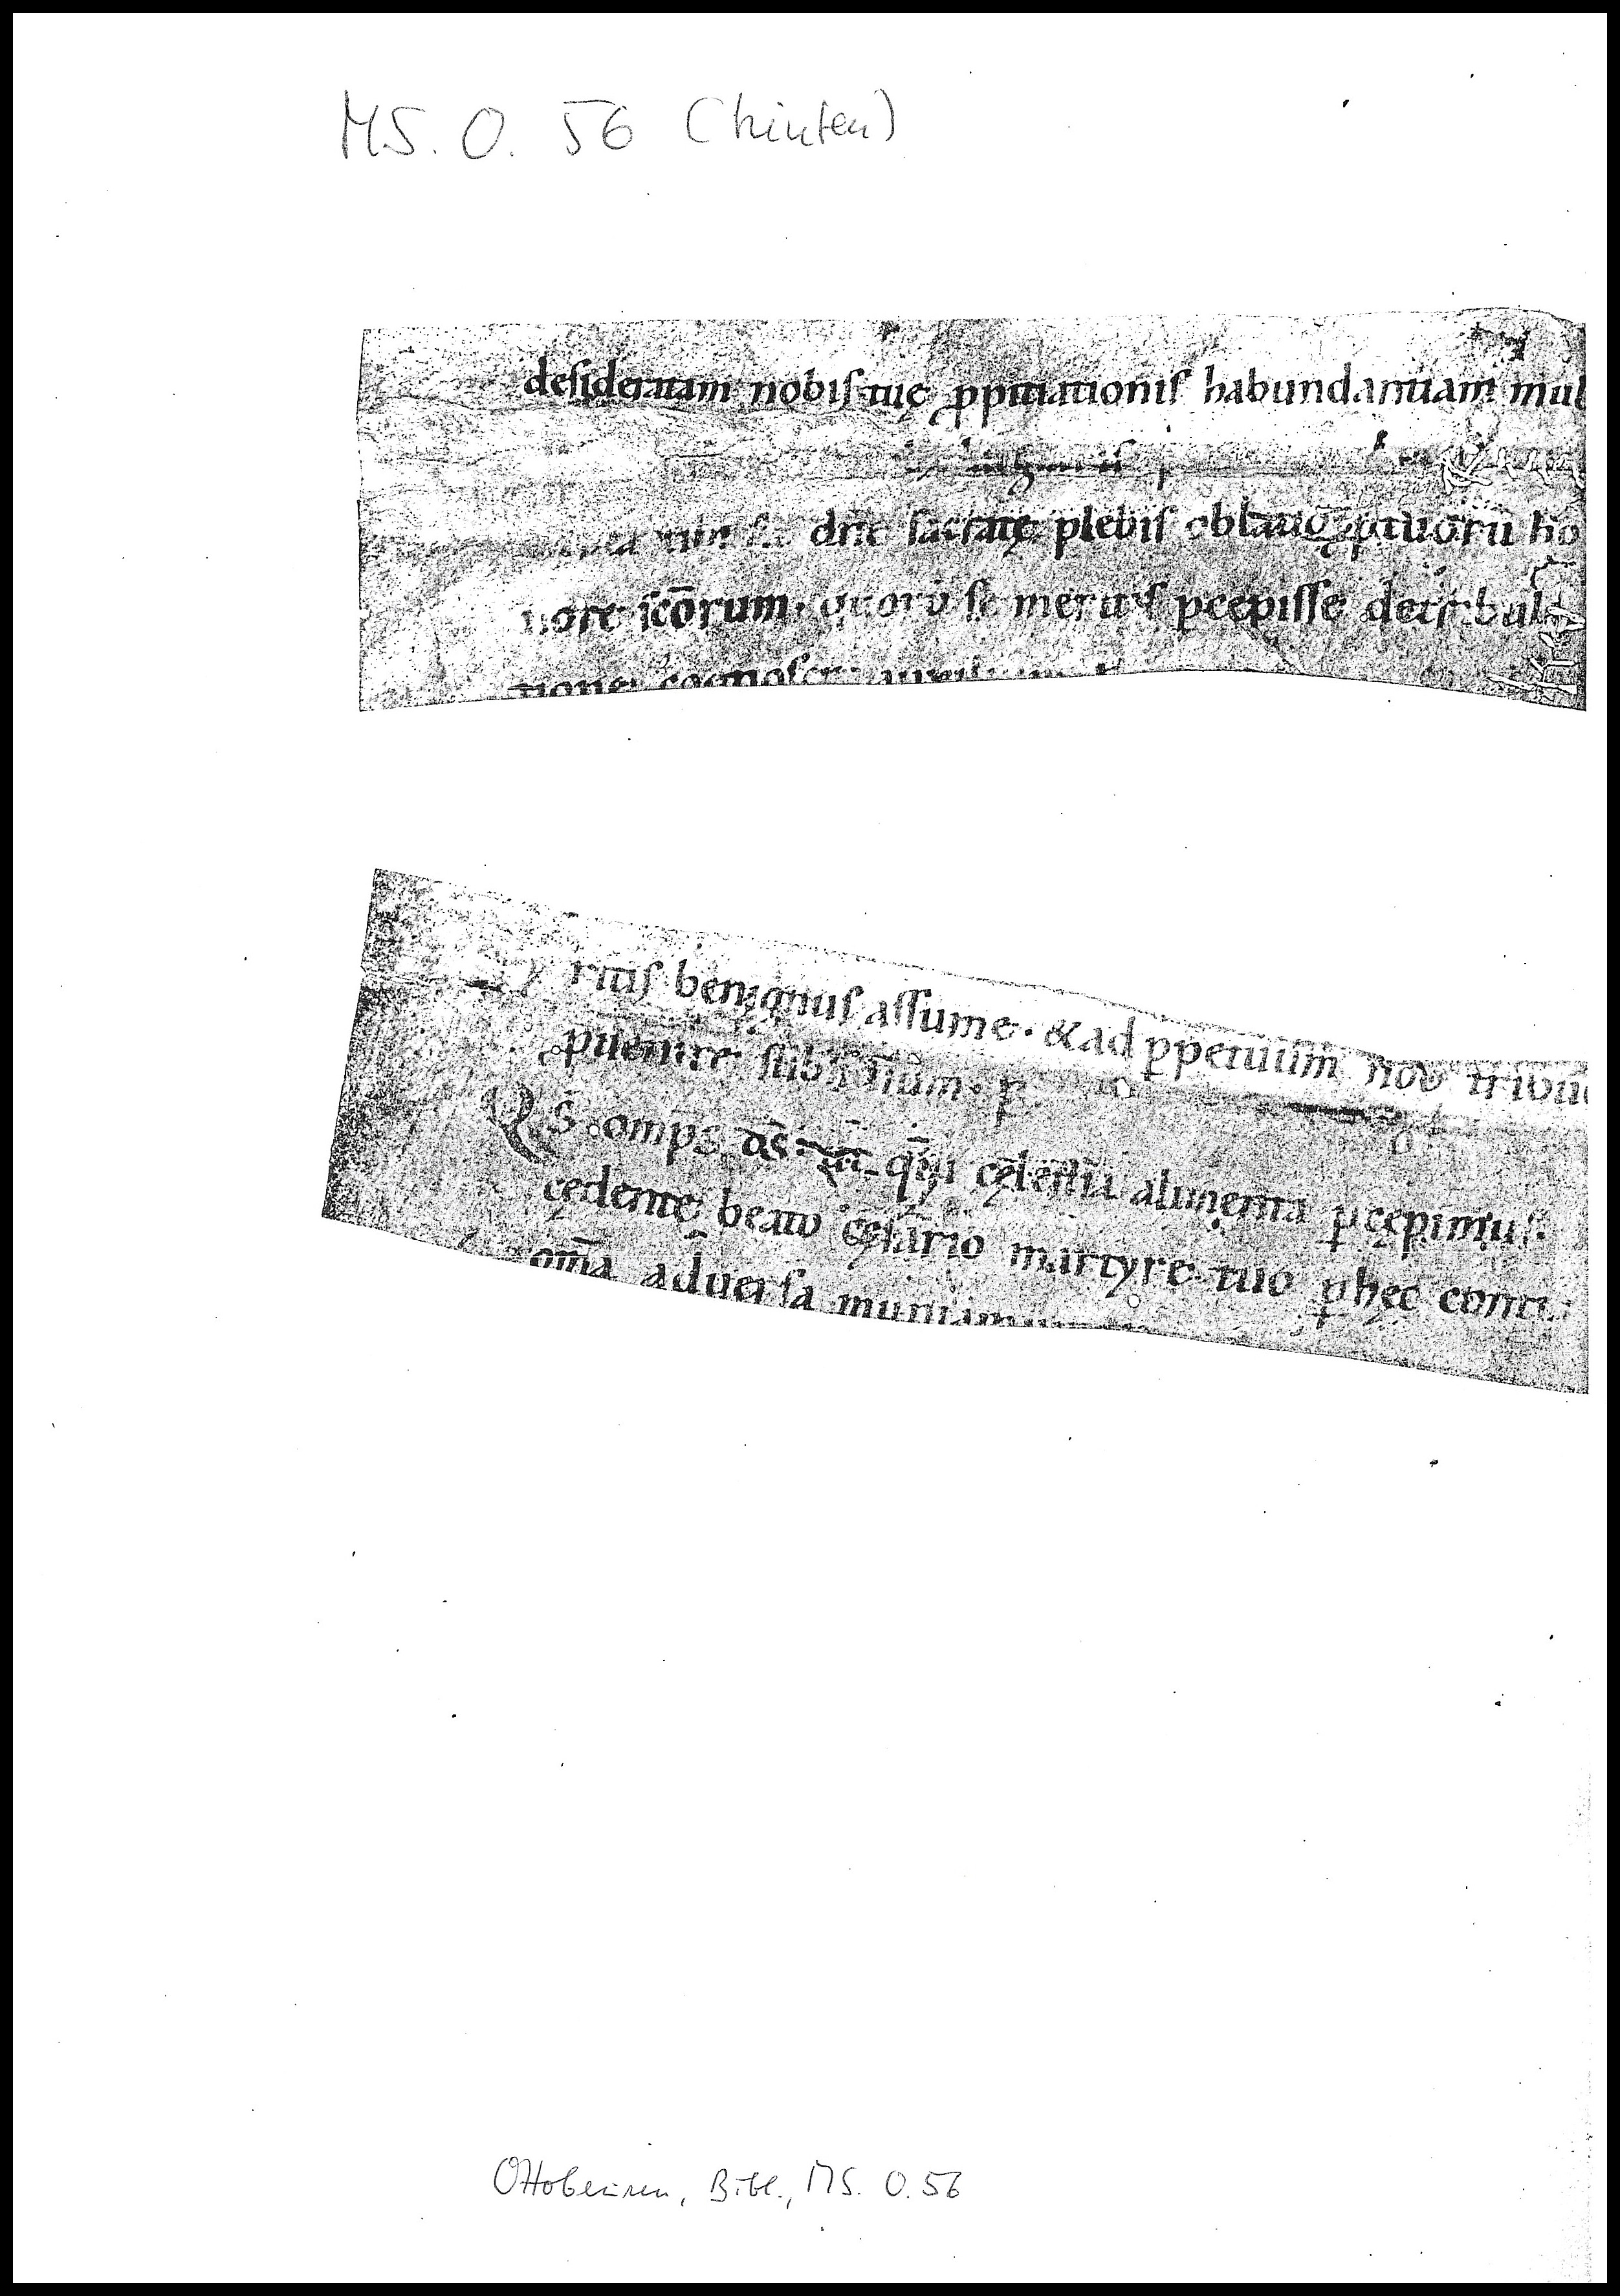 MS. O. 56 (hinten)
desideratam nobis tuę ꝓpitiationis habundantiam mul
dn̄e sacratę plebis oblatio ptuorū ho
nore scōrum. quorū se meritis ꝑcepisse de tribula
tione cognoscit auxiliū
ritis benignus assume. & ad ꝑpetuum nob̄ tribue
ꝑuenire subsidium. ꝑ
Qs̄ omps ds̄ ut qui cęlestia alimenta ꝑcepimus.
cędente beato cęsario martyre tuo ꝑ hęc cont
om̄a aduersa muniamur
Ottobeuren, Bibl., MS. O. 56